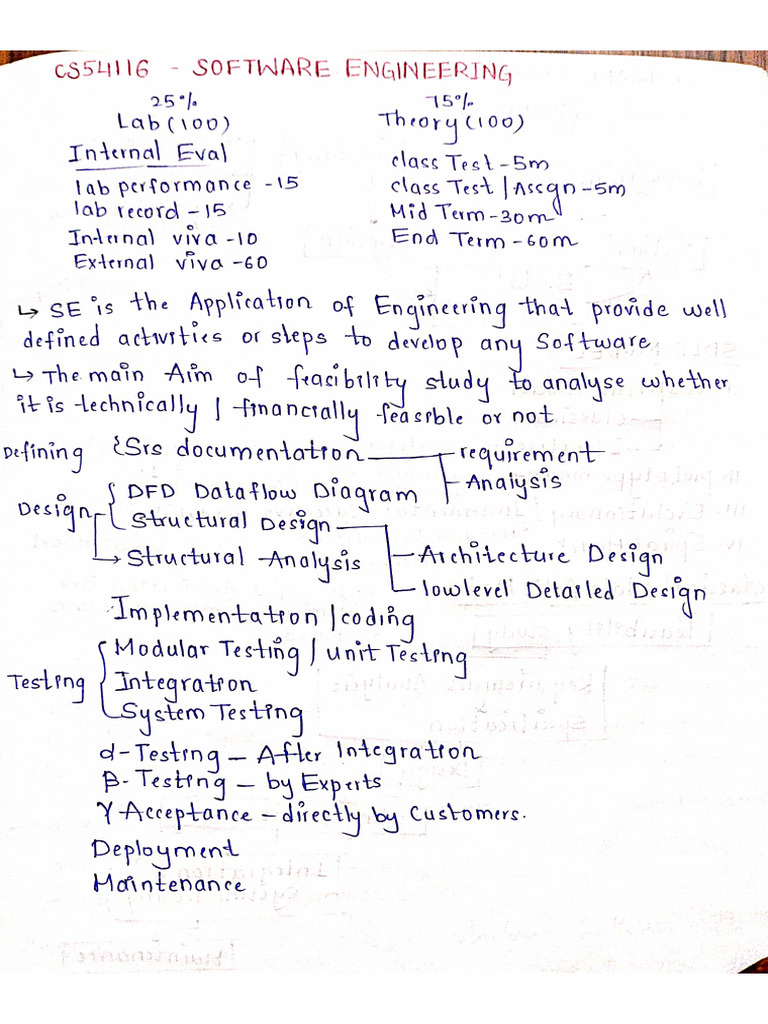 CS54116 - SOFTWARE ENGINEERING
25% 75%
Lab(100) Theory(100)
Internal Eval
class Test-5m
lab performance -15
class Test | Assgn-5m
lab record-15
Mid Term-30m
Internal viva-10
End Term-60m
External viva-60
↳ SE is the Application of Engineering that provide well
defined activities or steps to develop any Software
↳ The main Aim of feacibility study to analyse whether
it is technically | financially feasible or not
Defining {Srs documentation requirement
Analysis
{ DFD Dataflow Diagram
Design Structural Design
→ Structural Analysis Architecture Design
lowlevel Detailed Design
Implementation | coding
Modular Testing | unit Testing
Testing { Integration
System Testing
α-Testing – After Integration
β-Testing – by Experts
γ Acceptance – directly by Customers.
Deployment
Maintenance